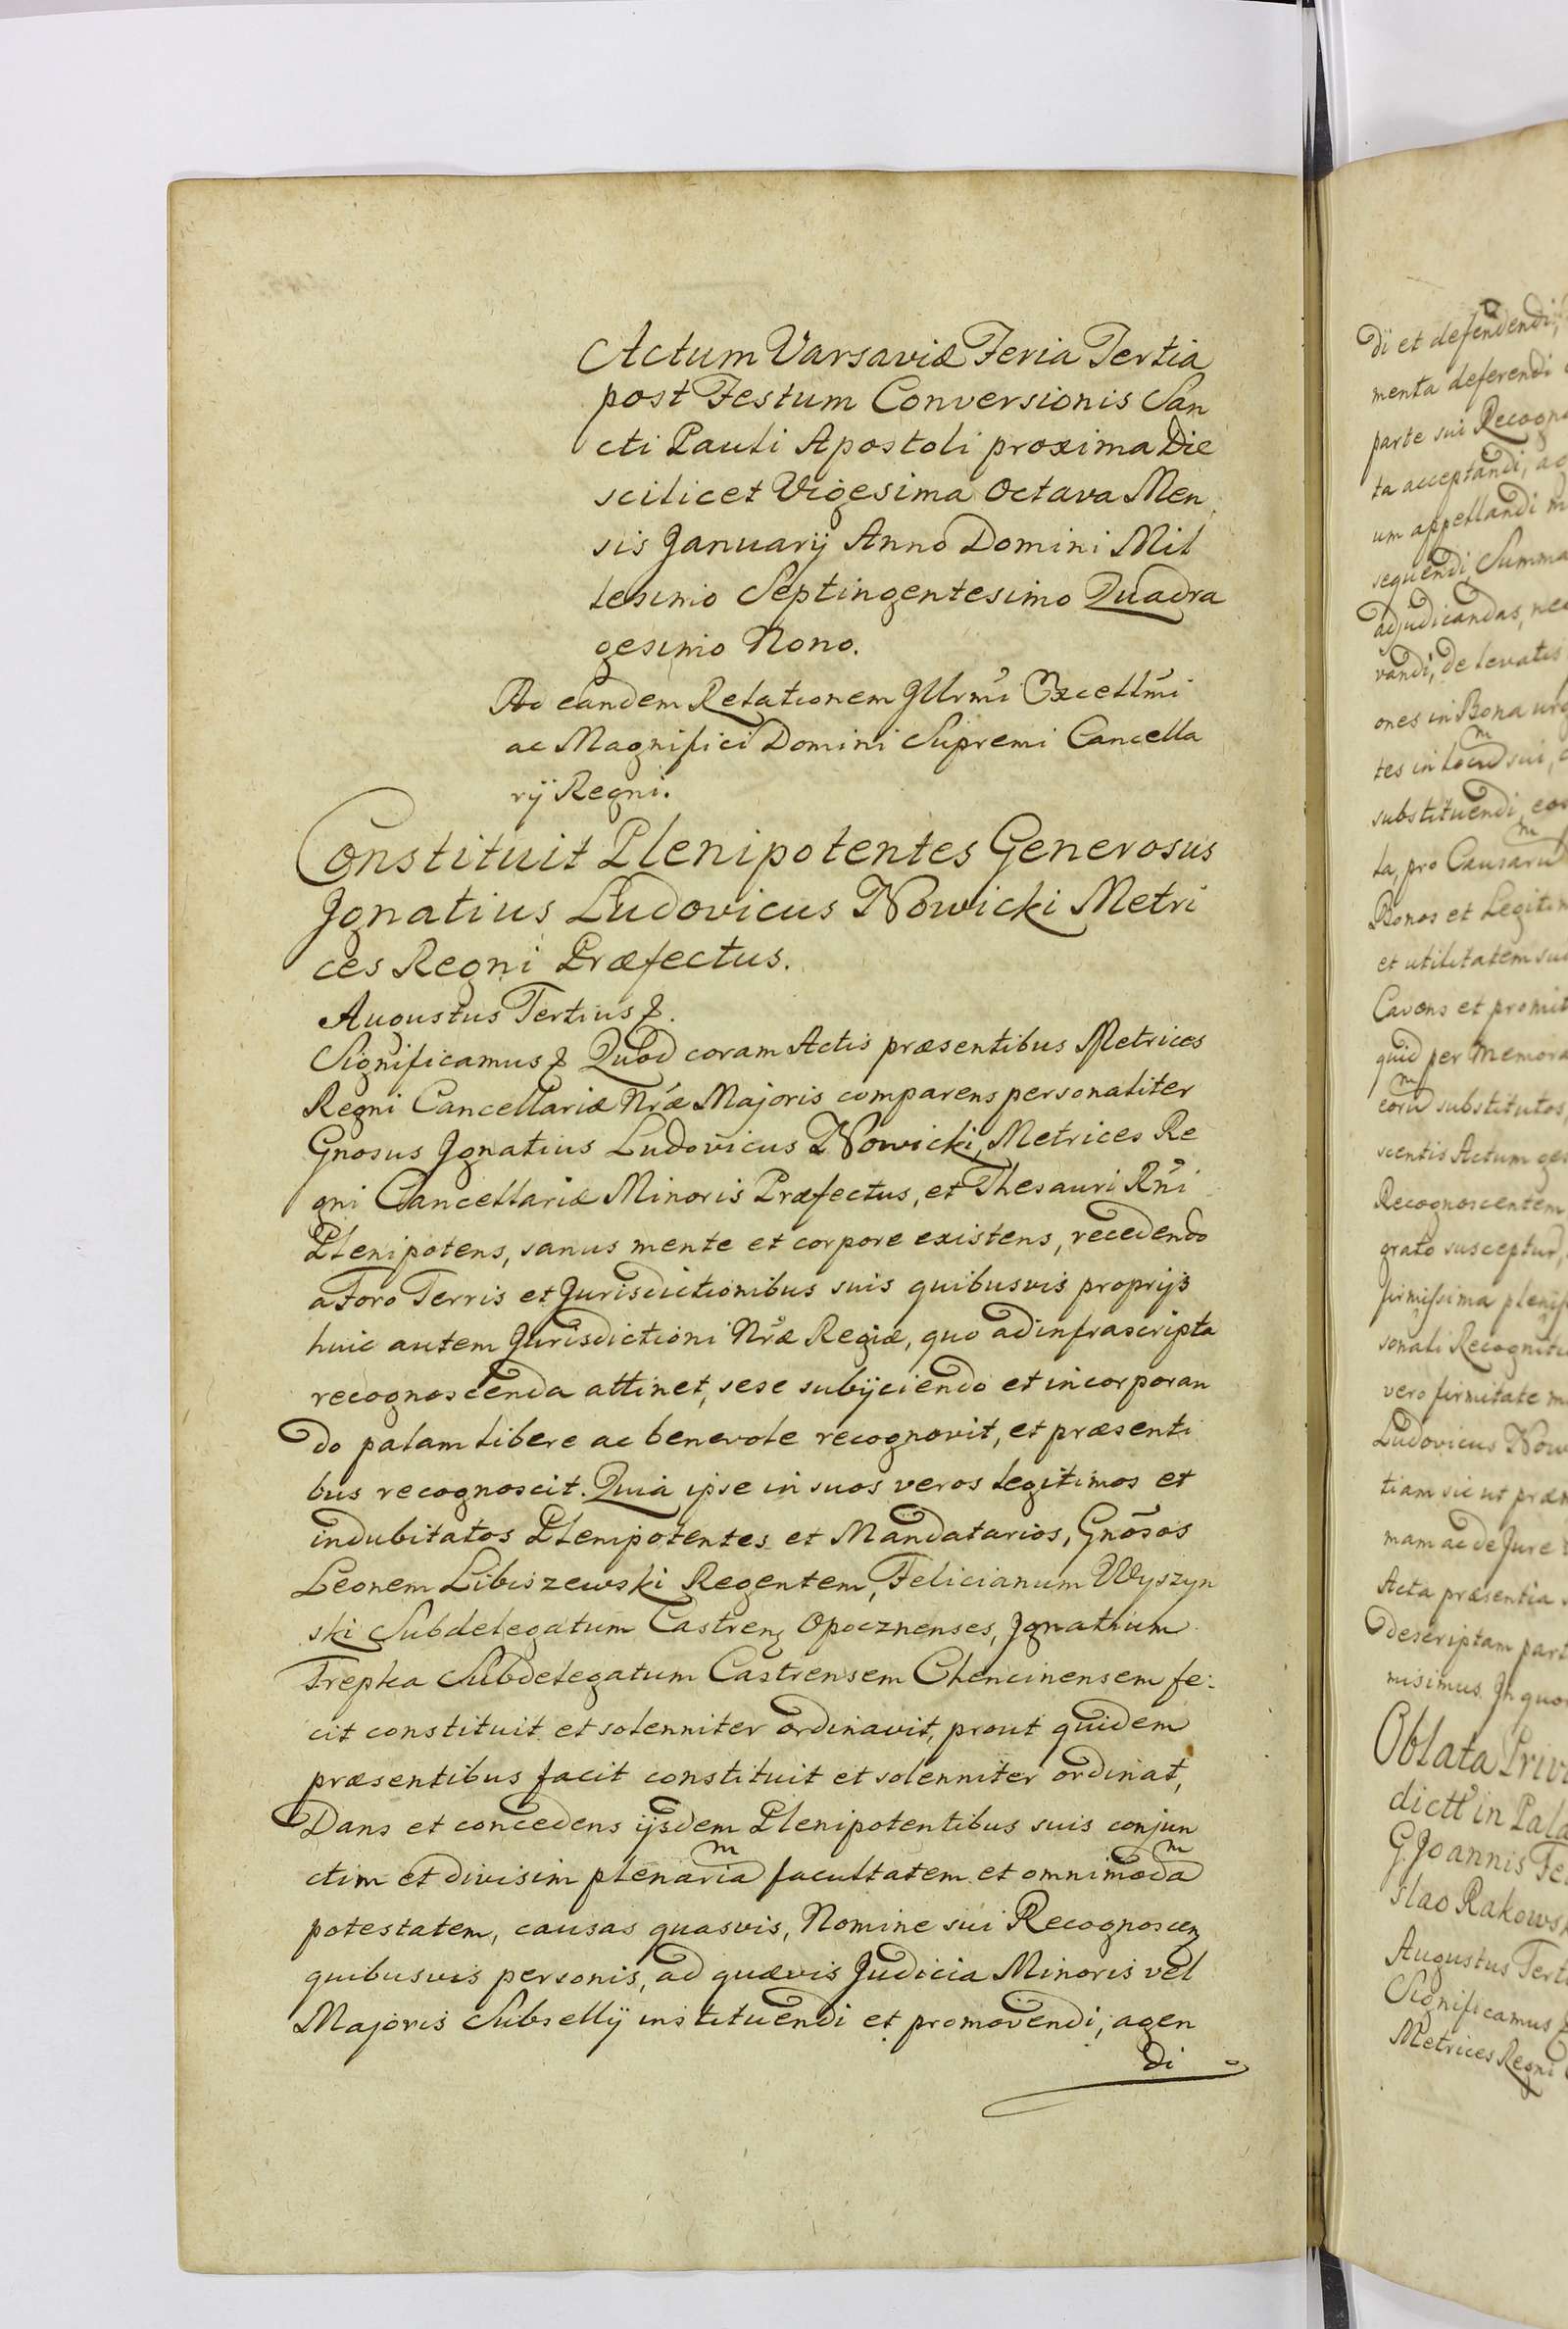 Actum Varsaviæ Feria Tertia
post Festum Conversionis San
cti Pauli Apostoli proxima Die
scilicet Vigesima Octava Men
sis Januarij Anno Domini Mil
lesimo Septingentesimo Quadra
gesimo Nono.
Ad eandem Relationem Jllrmi Excellmi
ac Magnifici Domini Supremi Cancella
rij Regni.
Constituit Plenipotentes Generosus
Jgnatius Ludovicus Nowicki Metri
ces Regni Præfectus.
Augustus Tertius &.
Significamus & Quod coram Actis præsentibus Metrices
Regni Cancellariæ Nræ Majoris comparens personaliter
Gnosus Jgnatius Ludovicus Nowicki, Metrices Re
gni Cancellariæ Minoris Præfectus, et Thesauri Rni
Plenipotens, sanus mente et corpore existens, recedendo
a Foro Terris et Jurisdictionibus suis quibusvis proprijs
huic autem Jurisdictioni Nræ Regiæ, quo ad infrascripta
recognoscenda attinet, sese subijciendo et incorporan
do palam libere ac benevole recognovit, et præsenti
bus recognoscit. Quia ipse in suos veros legitimos et
indubitatos Plenipotentes et Mandatarios, Gnõsos
Leonem Libiszewski Regentem, Felicianum Wyszyn
ski Subdelegatum Castren Opocznenses, Jgnatium
Trepka Subdelegatum Castrensem Chencinensem fe:
cit constituit et solenniter ordinavit, prout quidem
præsentibus facit constituit et solenniter ordinat,
Dans et concedens ijsdem Plenipotentibus suis conjun
ctim et divisim plenariam facultatem et omnimodam
potestatem, causas quasvis, Nomine sui Recognoscen
quibusvis personis, ad quævis Judicia Minoris vel
Majoris Subsellij instituendi et promovendi, agen
di
di et defendendi,
menta deferendi
parte sui Recogno
ta acceptandi, ac
um appellandi m
sequendi, Summa
adjudicandas, nec
vandi, de levatis
ones in Bona
tes in locum sui,
substituendi, eos
ta, pro Causarum
Bonos et Legitim
et utilitatem su
Cavens et promit
quid per memora
eorum substitutos,
scentis Actum ges
Recognoscentem
grato susceptur,
firmissima
sonali Recogniti
vero firmitate m
Ludovicus Now
tiam sic ut præm
mam ac de Jure
Acta præsentia
descriptam part
misimus. Jn quor
Oblata Privi
dictt in Pala
G. Joannis Fe
slao Rakowsk
Augustus Terti
Significamus &
Metrices Regni